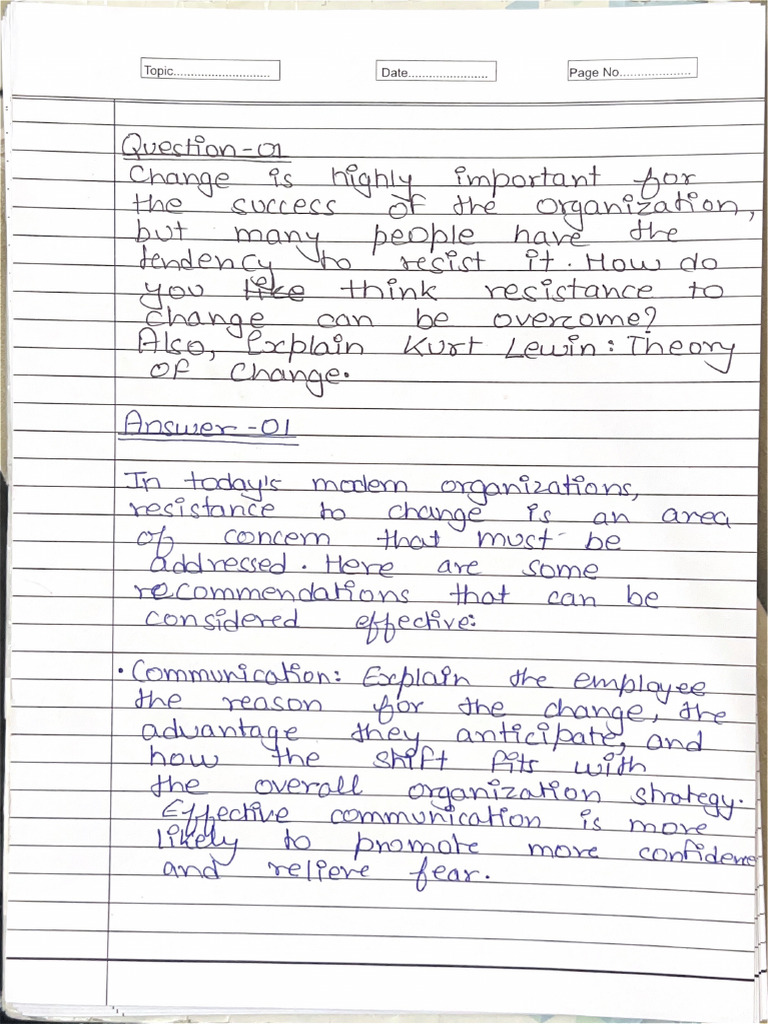 Topic............................
Date.........................
Page No.....................
Question-01
Change is highly important for
the success of the organization,
but many people have the
tendency to resist it. How do
you like think resistance to
change can be overcome?
Also, Explain Kurt Lewin: Theory
of Change.
Answer-01
In today's modern organizations,
resistance to change is an area
of concern that must be
addressed. Here are some
recommendations that can be
considered effective:
• Communication: Explain the employee
the reason for the change, the
advantage they anticipate, and
how the shift fits with
the overall organization strategy.
Effective communication is more
likely to promote more confidence
and relieve fear.